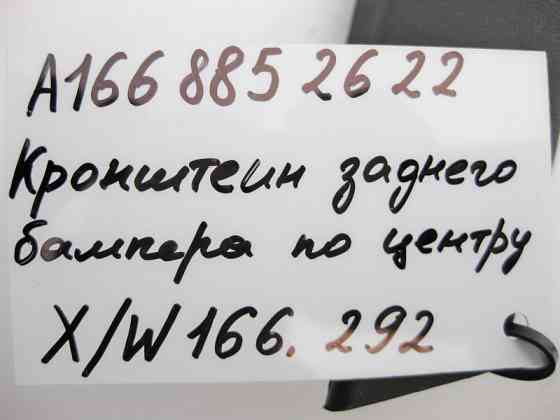 A166 885 26 22
Кронштеин заднего
бампера по центру
X/W166. 292